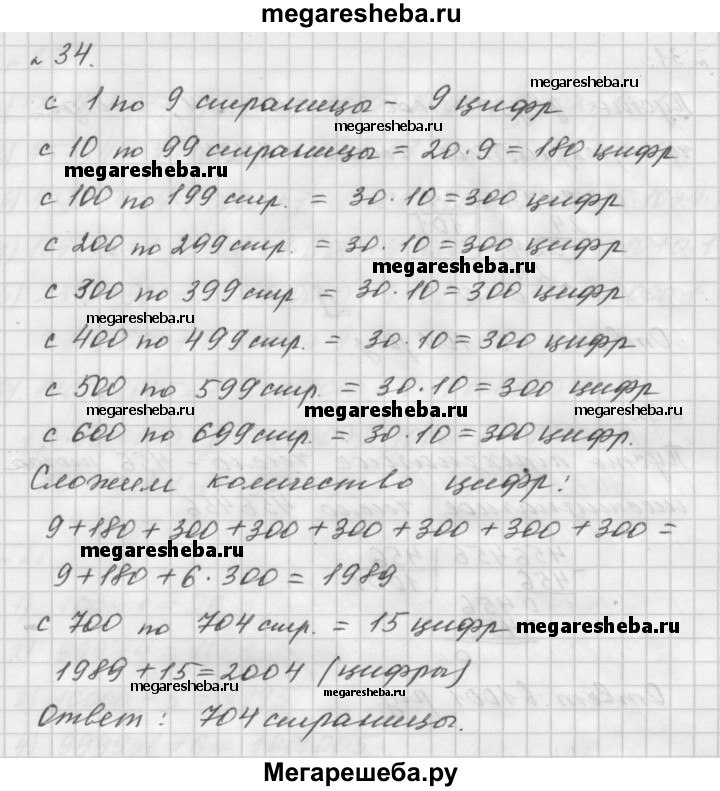 megaresheba.ru
№ 34.
megaresheba.ru
с 1 по 9 страницы - 9 цифр
megaresheba.ru
с 10 по 99 страницы = 20·9 = 180 цифр
megaresheba.ru
megaresheba.ru
с 100 по 199 стр. = 30·10=300 цифр
с 200 по 299 стр. = 30·10=300 цифр
megaresheba.ru
с 300 по 399 стр = 30·10=300 цифр
megaresheba.ru
с 400 по 499 стр. = 30·10=300 цифр
с 500 по 599 стр. = 30·10=300 цифр
megaresheba.ru megaresheba.ru megaresheba.ru
с 600 по 699 стр. = 30·10=300 цифр.
Сложим количество цифр:
9+180+300+300+300+300+300+300=
megaresheba.ru
9+180+6·300=1989
с 700 по 704 стр. = 15 цифр megaresheba.ru
1989+15=2004 (цифры)
megaresheba.ru megaresheba.ru
Ответ: 704 страницы.
Мегарешеба.ру